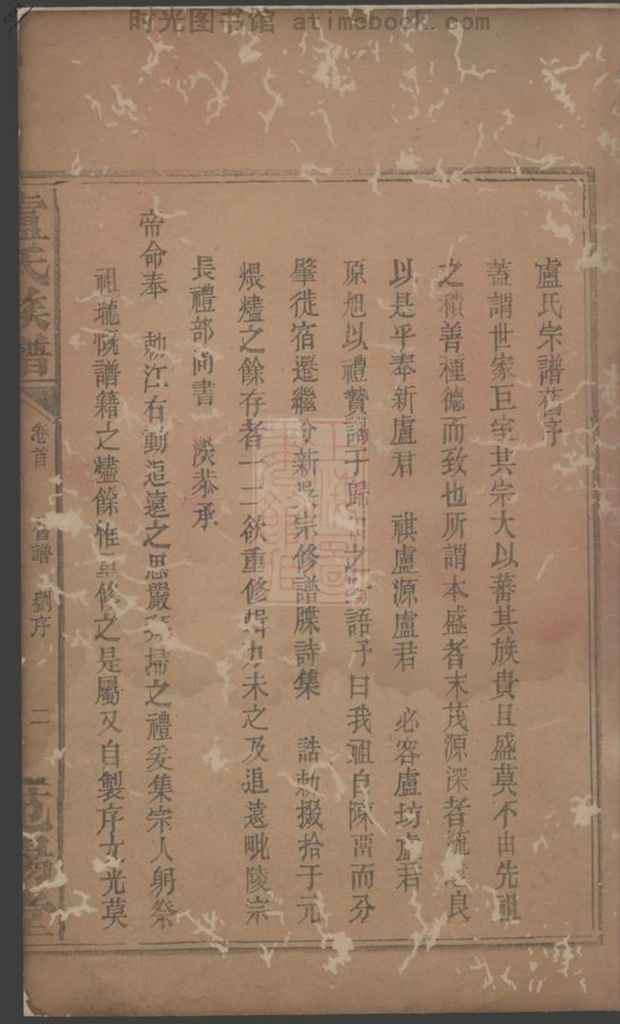 时光图书馆 atimebook.com
盧氏宗譜舊序
蓋謂世家巨室其宗大以蕃其族貴且盛莫不由先祖
之積善種德而致也所謂本盛者末茂源深者流良
以是乎奉新盧君 祺盧源盧君 必容盧坊盧君
原旭以禮贄謁于歸田之語予曰我祖自陳留而分
肇徙宿遷繼分新吳宗修譜牒詩集 誥勅掇拾于元
煨燼之餘存者一二欲重修輯力未之及追遠毗陵宗
長禮部尚書 淡恭承
帝命奉 勅江右動追遠之思嚴拜掃之禮爰集宗人躬祭
祖瓏慨譜籍之燼餘惟修之是屬又自製序文光莫
盧氏族譜
卷首
舊譜 劉序
二